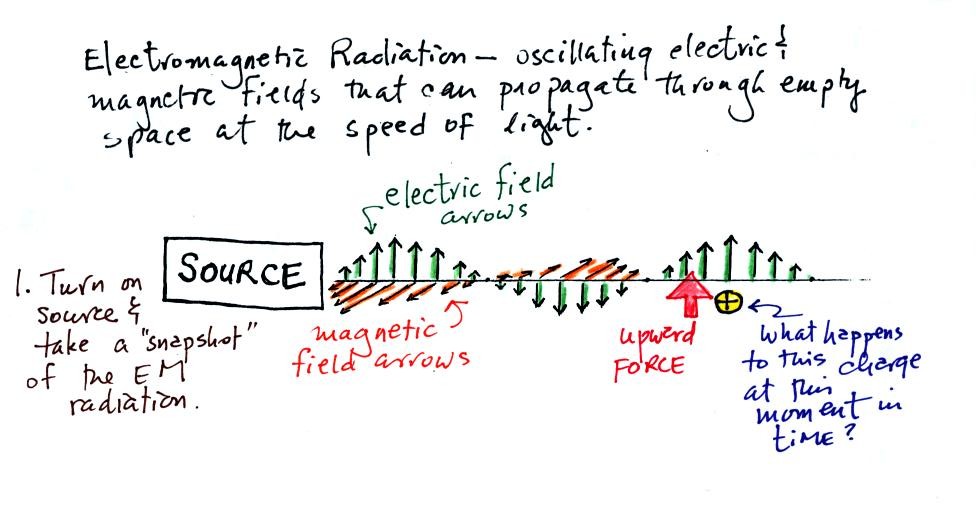 Electromagnetic Radiation – oscillating electric &
magnetic fields that can propagate through empty
space at the speed of light.
electric field
arrows
SOURCE
1. Turn on
source &
take a "snapshot"
of the EM
radiation.
magnetic
field arrows
upward
FORCE
+
What happens
to this charge
at this
moment in
TIME?